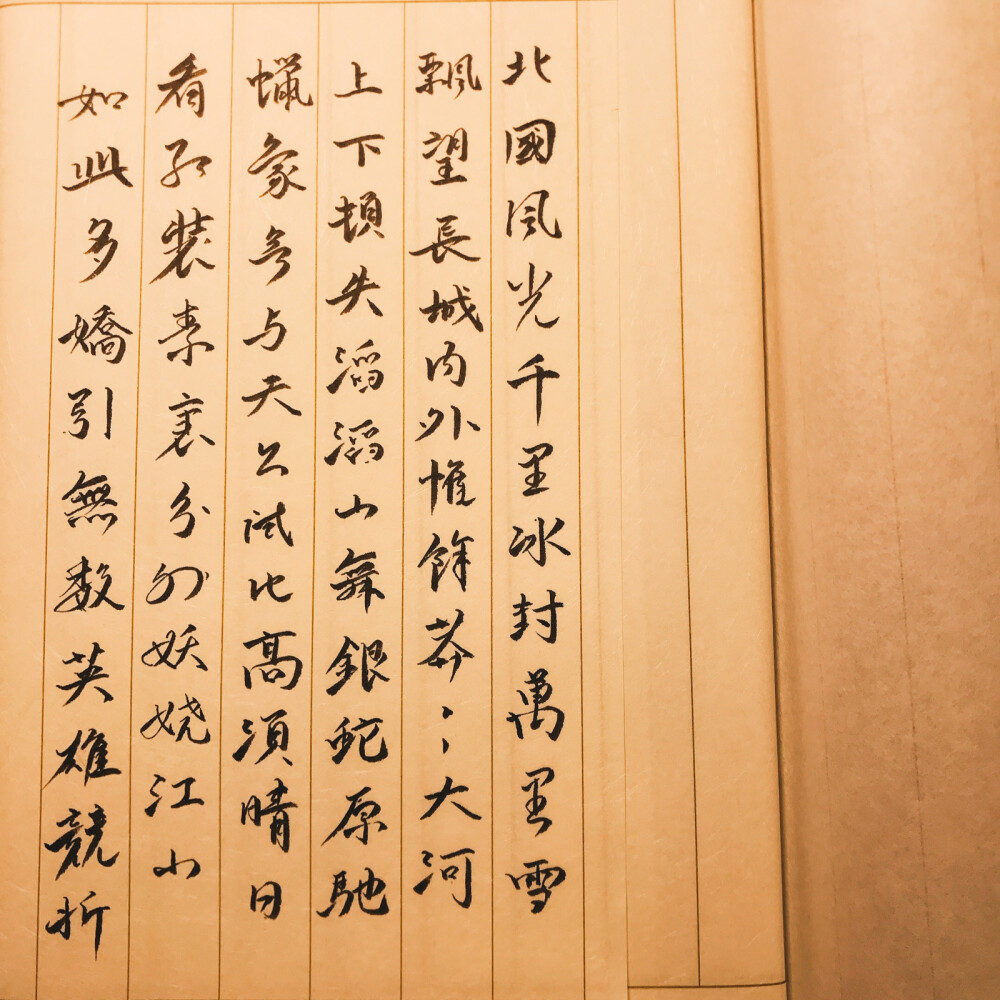 北國風光千里冰封萬里雪
飄望長城内外惟餘莽〻大河
上下頓失滔滔山舞銀蛇原馳
蠟象欲与天公試比高須晴日
看红裝素裹分外妖娆江山
如此多嬌引無数英雄競折